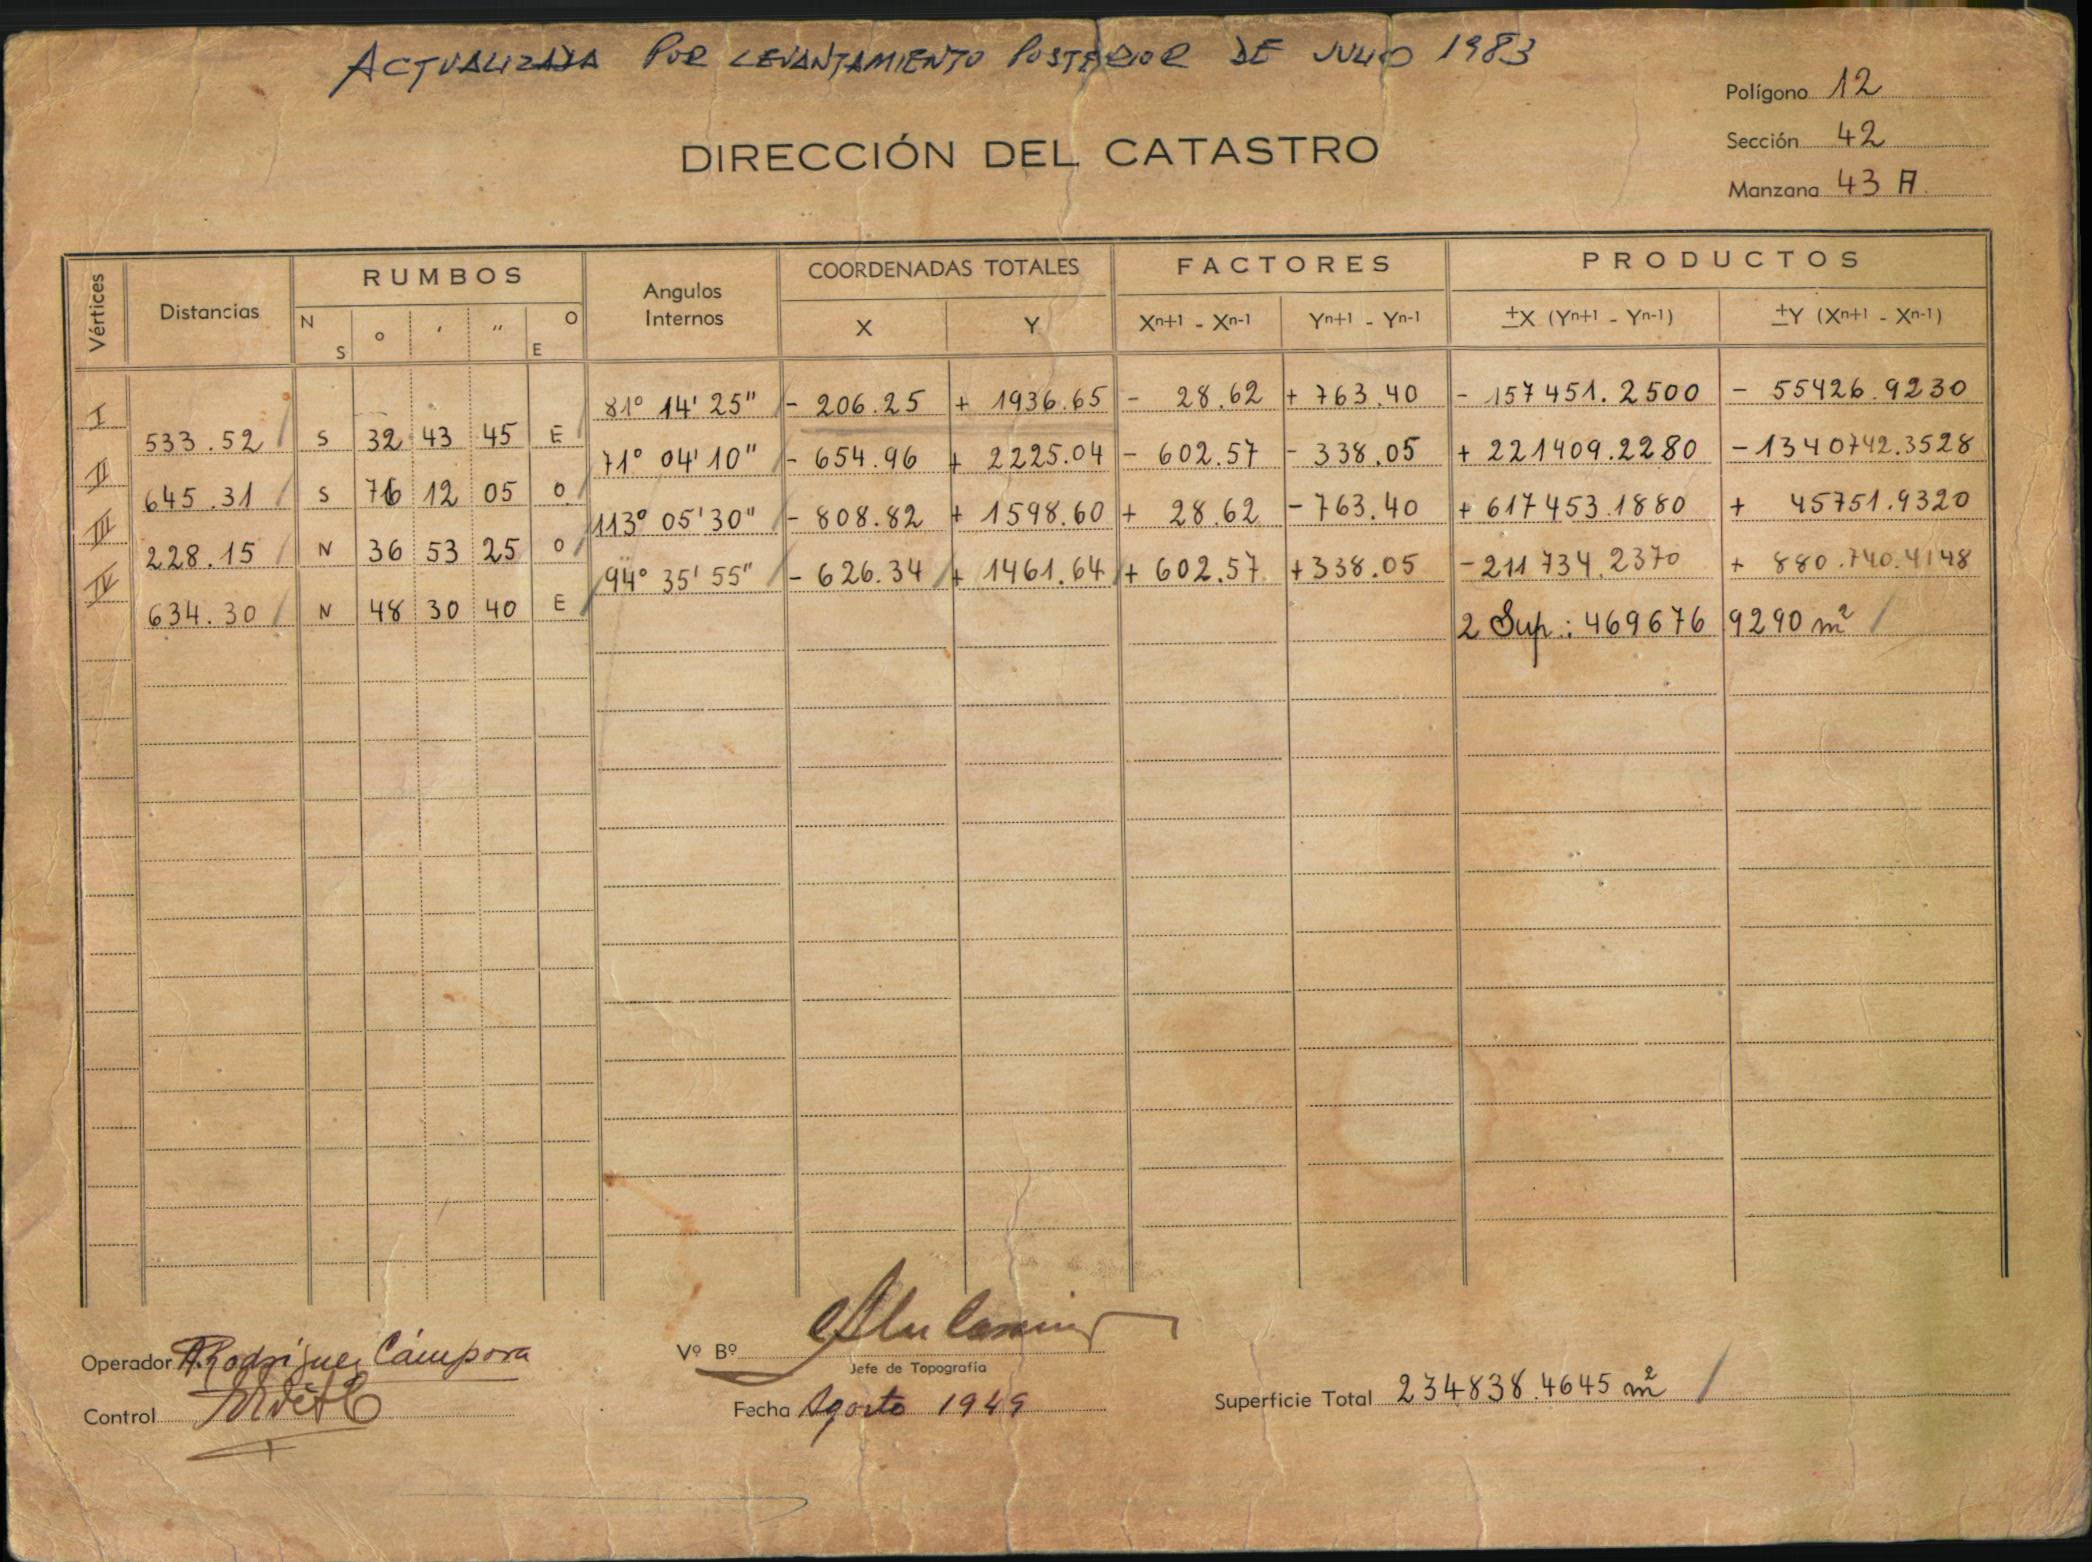 ACTUALIZADA POR LEVANTAMIENTO POSTERIOR DE JULIO 1983
Polígono 12
Sección 42
Manzana 43 A
DIRECCIÓN DEL CATASTRO
Vértices Distancias RUMBOS Angulos Internos COORDENADAS TOTALES FACTORES PRODUCTOS
N S ° ' " O E X Y Xn+1 - Xn-1 Yn+1 - Yn-1 ±X (Yn+1 - Yn-1) ±Y (Xn+1 - Xn-1)
I 81° 14' 25" - 206.25 + 1936.65 - 28.62 + 763.40 - 157451.2500 - 55426.9230
533.52 S 32 43 45 E
II 71° 04' 10" - 654.96 + 2225.04 - 602.57 - 338.05 + 221409.2280 - 1340742.3528
645.31 S 76 12 05 O
III 113° 05' 30" - 808.82 + 1598.60 + 28.62 - 763.40 + 617453.1880 + 45751.9320
228.15 N 36 53 25 O
IV 94° 35' 55" - 626.34 + 1461.64 + 602.57 + 338.05 - 211734.2370 + 880.740.4148
634.30 N 48 30 40 E
2 Sup.: 469676 9290 m²
Operador A. Rodríguez Cámpora
Control
Vº Bº
Jefe de Topografía
Fecha Agosto 1949
Superficie Total 234838.4645 m²